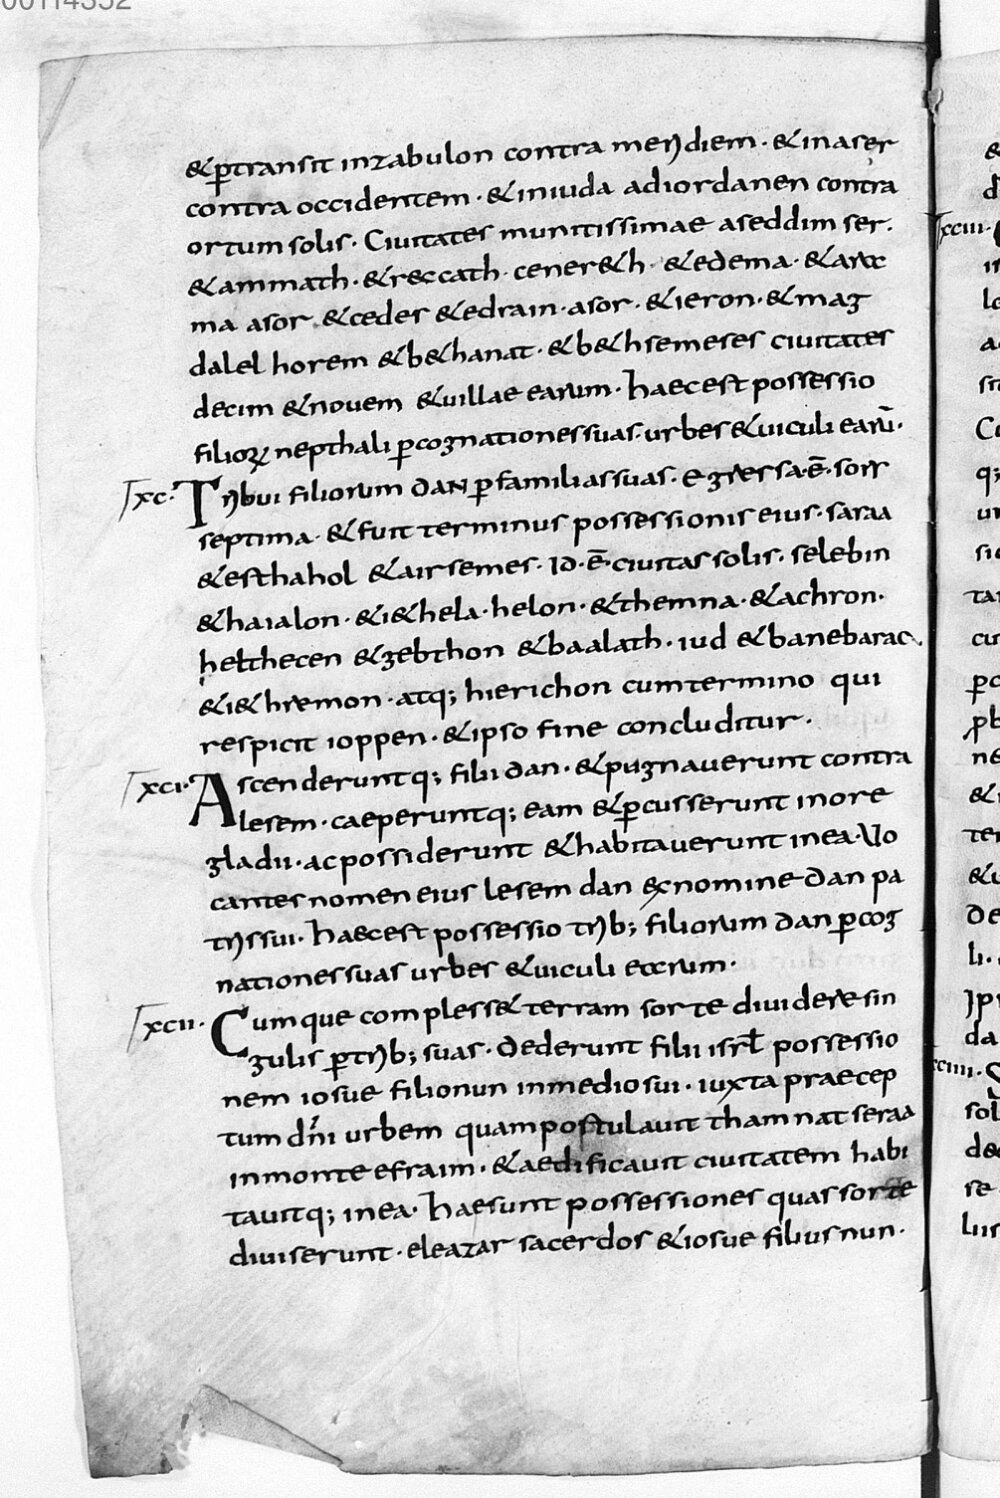 00114352
&ꝑtransit inzabulon contra meridiem · & inaser
contra occidentem · & iniuda adiordanen contra
ortum solis · Ciuitates munitissimae aseddim ser ·
& ammath · & reccath · cener&h · & edema · & arac
ma asor · & cedes & edrain · asor · & ieron · & mag
dalel horem & b&hanat · & b&hsemeses ciuitates
decim & nouem & uillae earum · haec est possessio
filioꝝ nepthali ꝑ cognationes suas · urbes & uiculi earū ·
xc · Tribui filiorum dan ꝑ familias suas · egressa · ē · sors
septima · & fuit terminus possessionis eius · saraa
& esthahol & airsemes · id · ē · ciuitas solis · selebin
& haialon · & i&hela · helon · & themna · & achron ·
helthecen & gebthon & baalath · iud & banebarac ·
& i&hremon · atq; hierichon cum termino qui
respicit ioppen · & ipso fine concluditur ·
xci · Ascenderuntq; filii dan · & pugnauerunt contra
lesem · caeperuntq; eam & ꝑcusserunt inore
gladii · ac possiderunt & habitauerunt inea · Uo
cantes nomen eius lesem dan exnomine dan pa
tris sui · haec est possessio trib; filiorum dan ꝑ cog
nationes suas urbes & uiculi earum ·
xcii · Cumque compless& terram sorte diuidere sin
gulis ꝑ trib; suas · dederunt filii isrł possessio
nem iosue filio nun inmedio sui · iuxta praecep
tum dn̄i urbem quam postulauit thamnat seraa
inmonte efraim · & aedificauit ciuitatem habi
tauitq; inea · hae sunt possessiones quas sorte
diuiserunt · eleazar sacerdos & iosue filius nun ·